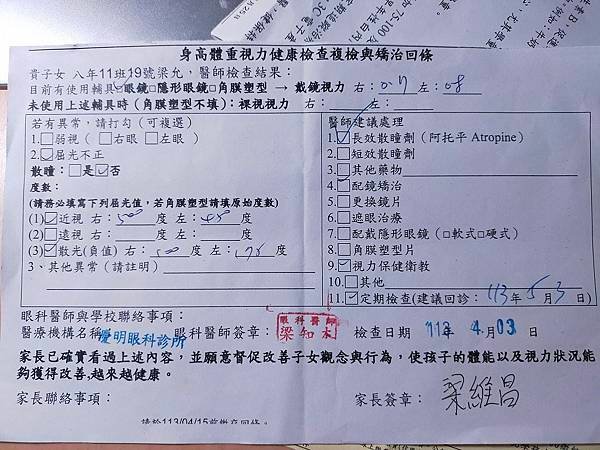 身高體重視力健康檢查複檢與矯治回條
貴子女 八年11班19號梁允，醫師檢查結果：
目前有使用輔具□眼鏡□隱形眼鏡□角膜塑型 → 戴鏡視力 右：0.7 左：0.8
未使用上述輔具時（角膜塑型不填）：裸視視力 右： 左：
若有異常，請打勾（可複選）
1.□弱視（□右眼 □左眼）
2.☑屈光不正
散瞳：□是☑否
度數：
(請務必填寫下列屈光值，若角膜塑型請填原始度數)
(1)☑近視 右：500 度 左： 度
(2)□遠視 右： 度 左： 度
(3)☑散光(負值) 右：100 度 左：175 度
3、其他異常（請註明）
醫師建議處理
1.☑長效散瞳劑（阿托平 Atropine）
2.□短效散瞳劑
3.□其他藥物
4.☑配鏡矯治
5.□更換鏡片
6.□遮眼治療
7.□配戴隱形眼鏡(□軟式□硬式)
8.□角膜塑型片
9.☑視力保健衛教
10.□其他
11.☑定期檢查(建議回診：113年5月3日)
眼科醫師與學校聯絡事項：
醫療機構名稱 愛明眼科診所 眼科醫師簽章： 眼科醫師 梁知本 檢查日期 113年 4月 03日
家長已確實看過上述內容，並願意督促改善子女觀念與行為，使孩子的體能以及視力狀況能
夠獲得改善,越來越健康。
家長聯絡事項： 家長簽章：梁維昌
請於113/04/15前繳交回條。